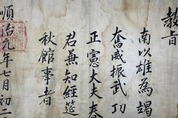 教旨
南以雄為竭
奮威振武功
正憲大夫
君兼知經筵
秋館事者
順治九年七月初二